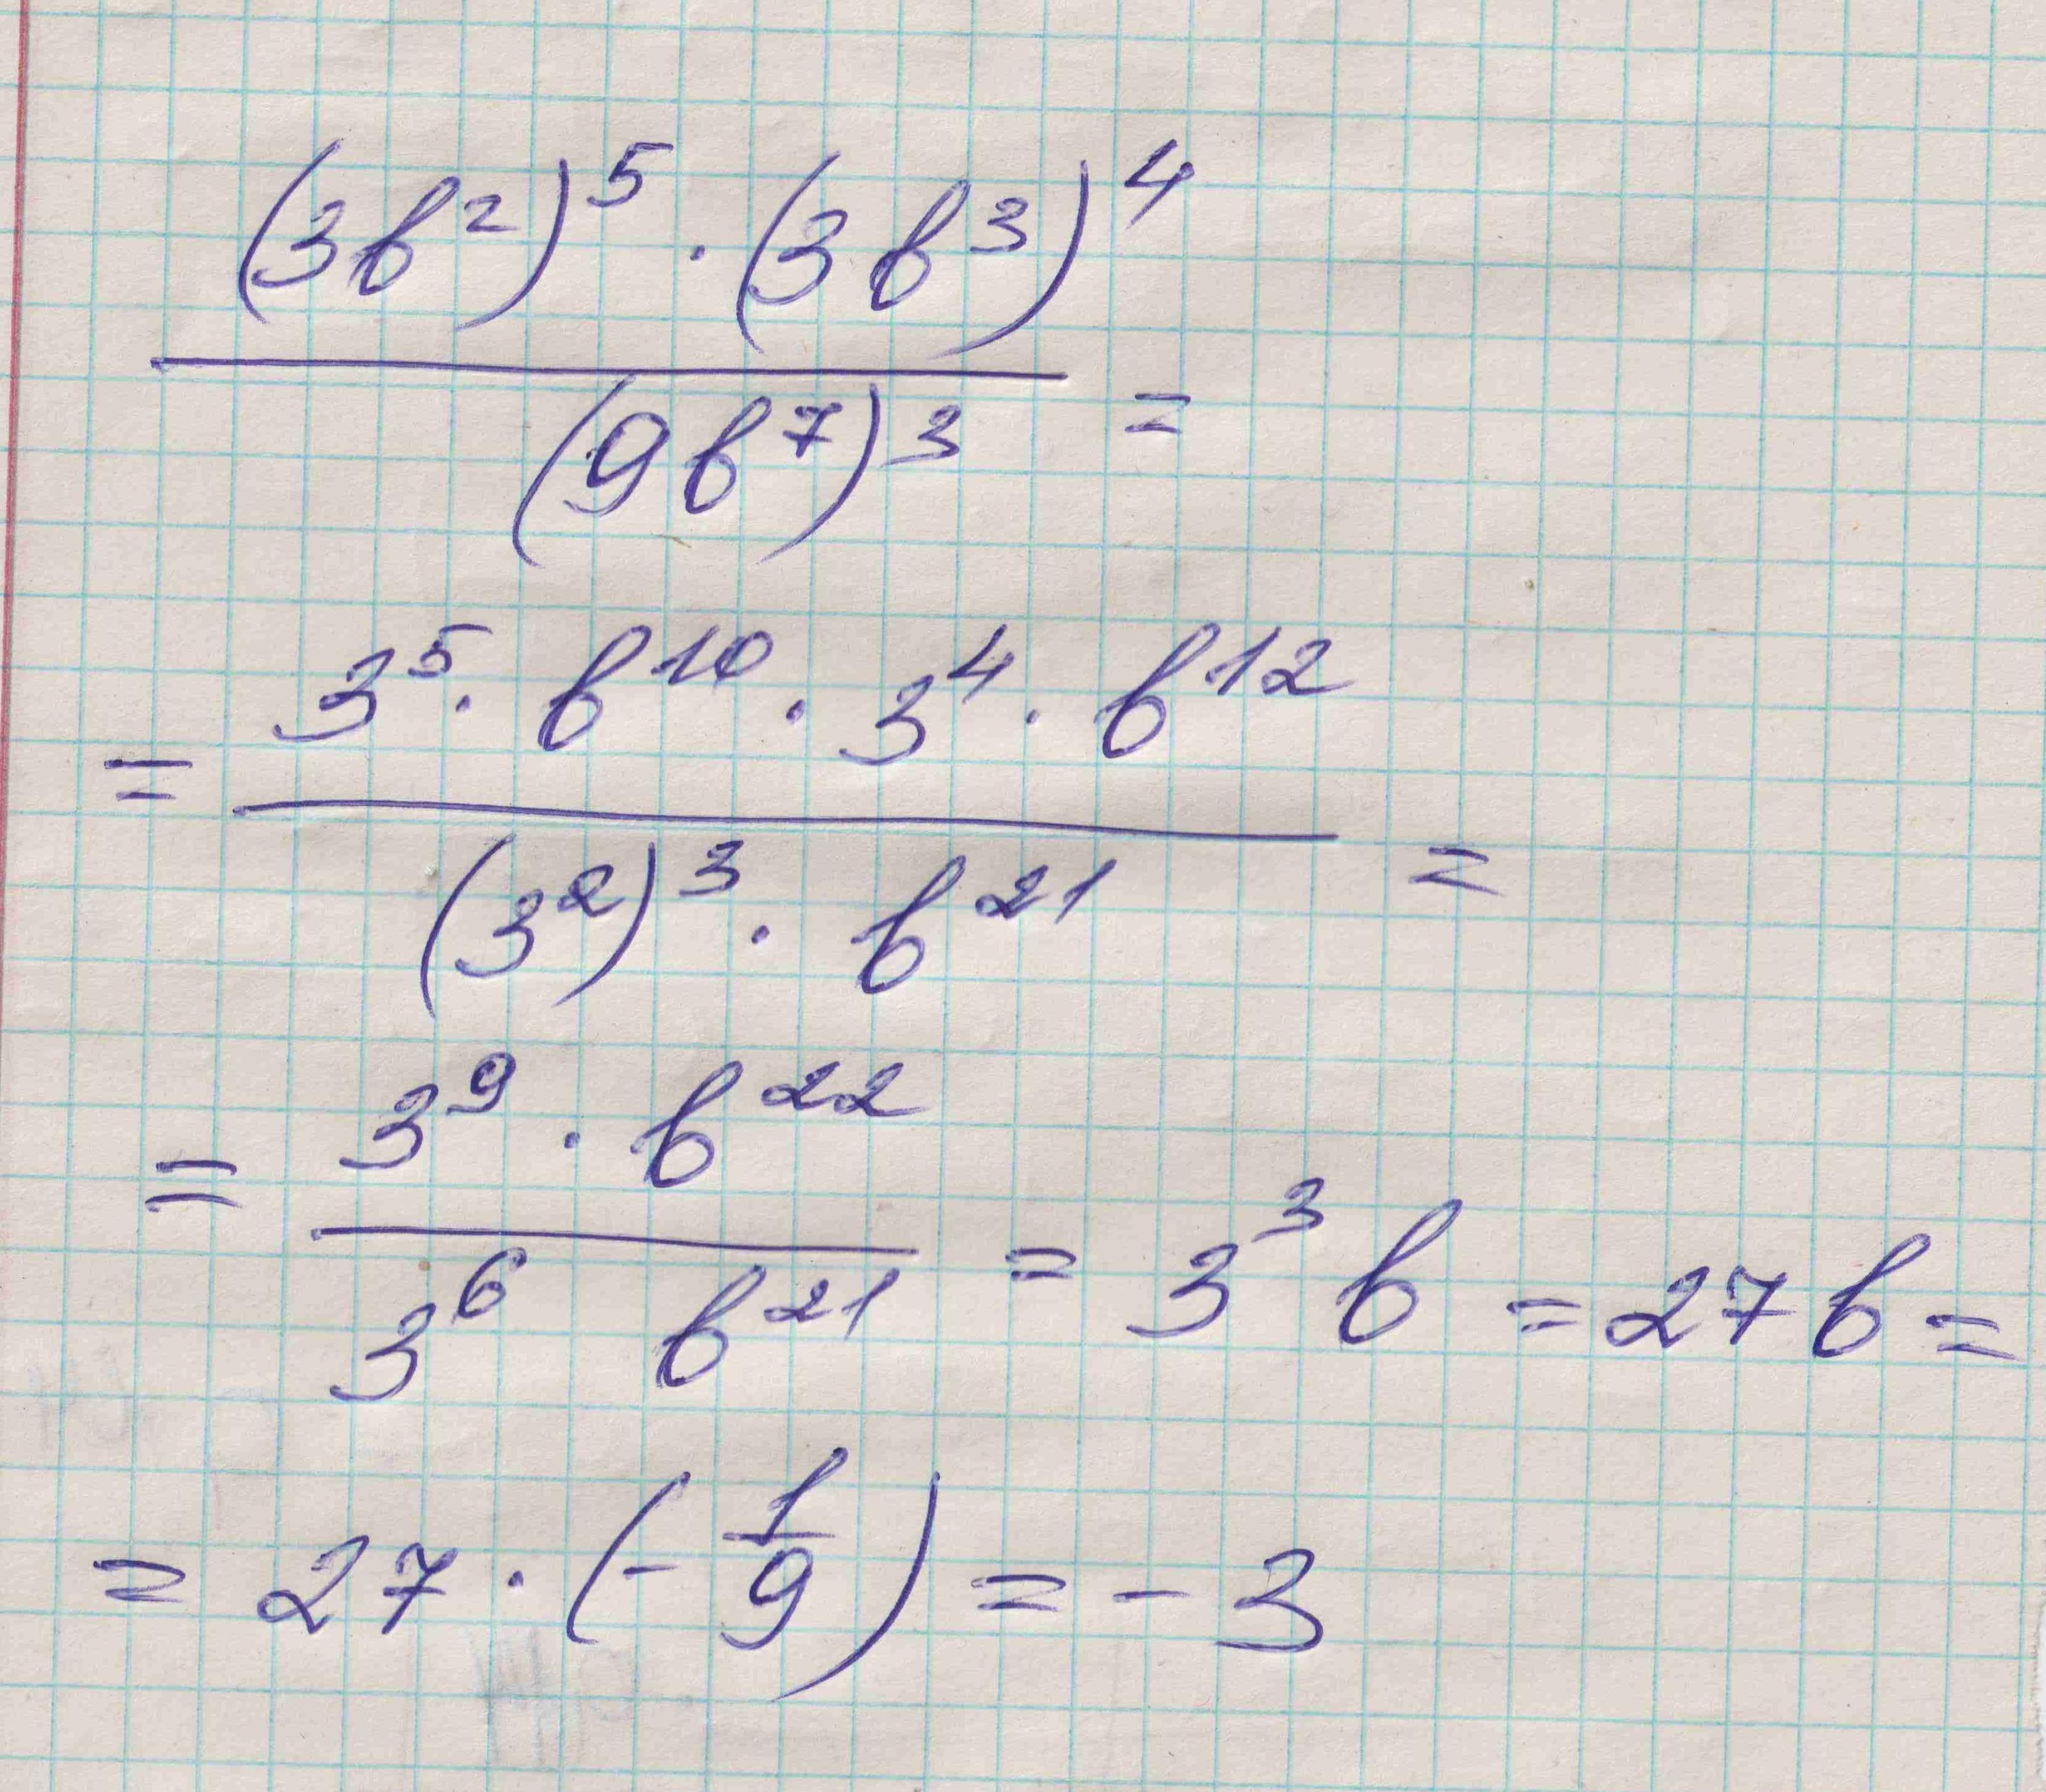 (3b²)⁵ · (3b³)⁴
―――――――― =
(9b⁷)³
= 3⁵ · b¹⁰ · 3⁴ · b¹²
―――――――― =
(3²)³ · b²¹
= 3⁹ · b²²
―――――――― = 3³b = 27b =
3⁶ b²¹
= 27 · (-1/9) = -3